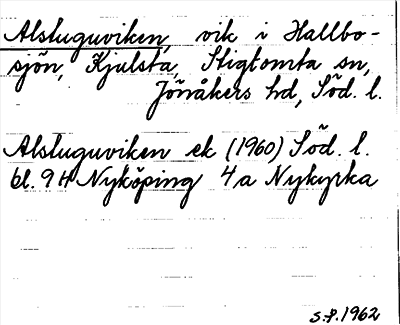 Alsluguviken, vik i Hallbo-
sjön, Kjulsta, Stigtomta sn,
Jönåkers hd, Söd. l.
Alsluguviken ek (1960) Söd. l.
bl. 9 H Nyköping 4a Nykyrka
S.P. 1962